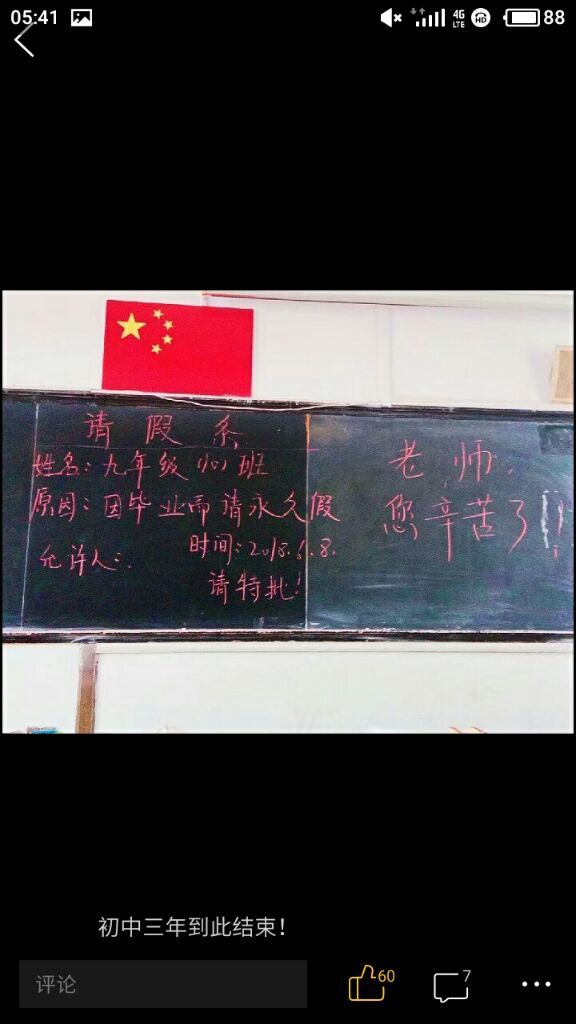 05:41
4G
LTE
HD
88
请假条
姓名:九年级(10)班
原因:因毕业而请永久假
时间:2018.6.8.
允许人:
请特批!
老师,
您辛苦了!!
初中三年到此结束!
评论
60
7